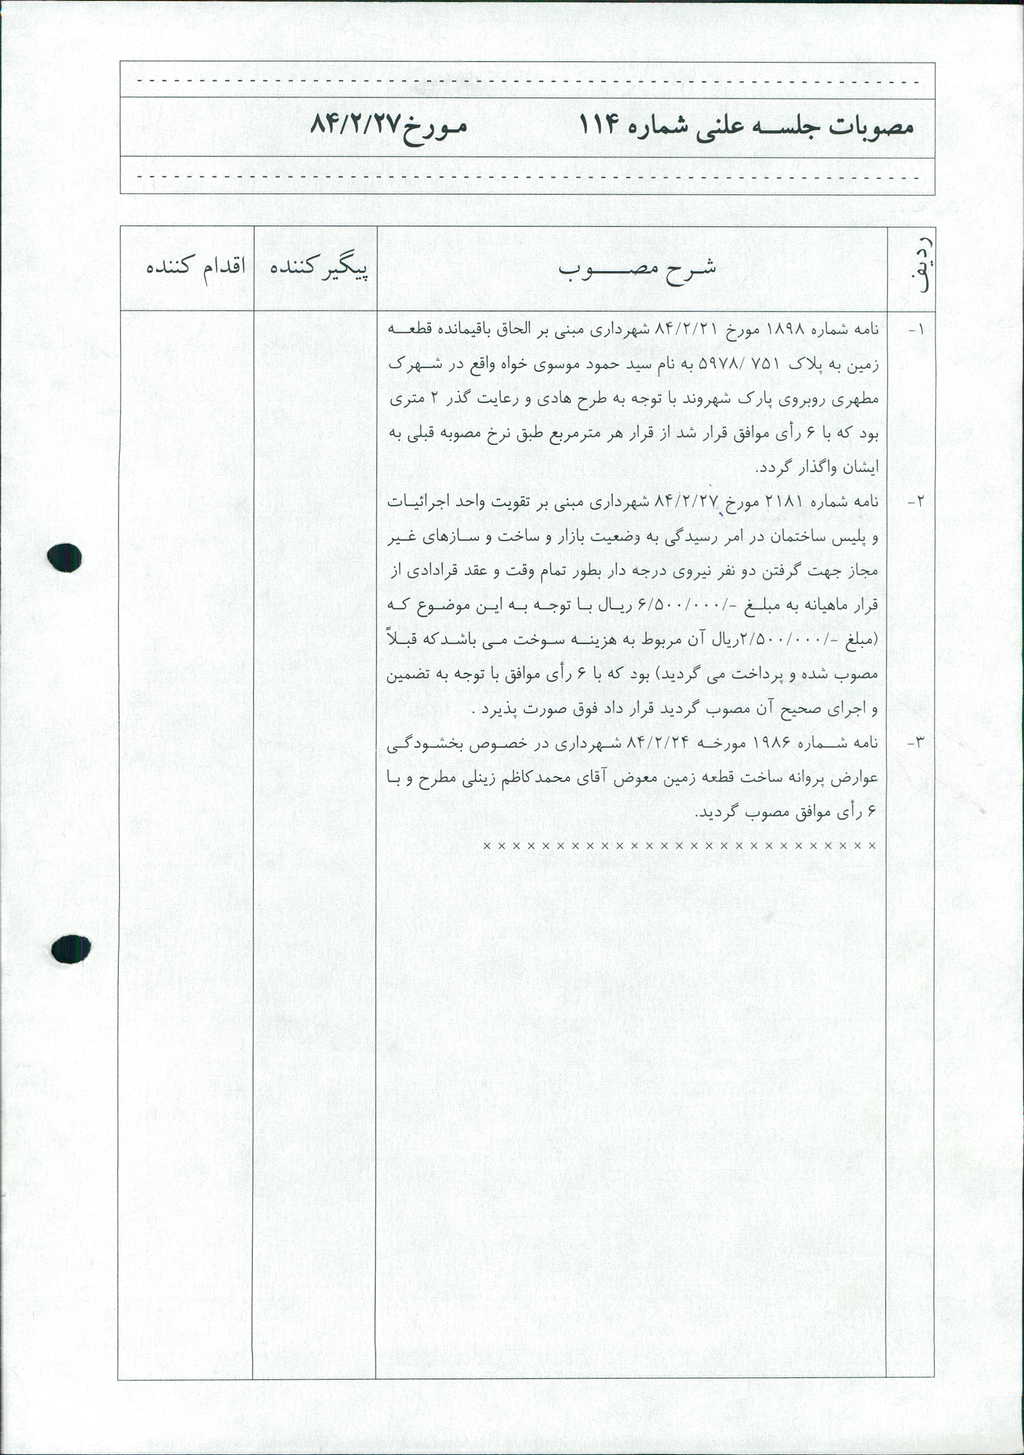 مصوبات جلسه علنی شماره ۱۱۴ مورخ ۸۴/۲/۲۷
ردیف شرح مصوب پیگیر کننده اقدام کننده
۱- نامه شماره ۱۸۹۸ مورخ ۸۴/۲/۲۱ شهرداری مبنی بر الحاق باقیمانده قطعه
زمین به پلاک ۷۵۱ /۵۹۷۸ به نام سید حمود موسوی خواه واقع در شهرک
مطهری روبروی پارک شهروند با توجه به طرح هادی و رعایت گذر ۲ متری
بود که با ۶ رأی موافق قرار شد از قرار هر مترمربع طبق نرخ مصوبه قبلی به
ایشان واگذار گردد.
۲- نامه شماره ۲۱۸۱ مورخ ۸۴/۲/۲۷ شهرداری مبنی بر تقویت واحد اجرائیات
و پلیس ساختمان در امر رسیدگی به وضعیت بازار و ساخت و سازهای غیر
مجاز جهت گرفتن دو نفر نیروی درجه دار بطور تمام وقت و عقد قرادادی از
قرار ماهیانه به مبلغ -/۶/۵۰۰/۰۰۰ ریال با توجه به این موضوع که
(مبلغ -/۲/۵۰۰/۰۰۰ریال آن مربوط به هزینه سوخت می باشدکه قبلاً
مصوب شده و پرداخت می گردید) بود که با ۶ رأی موافق با توجه به تضمین
و اجرای صحیح آن مصوب گردید قرار داد فوق صورت پذیرد .
۳- نامه شماره ۱۹۸۶ مورخه ۸۴/۲/۲۴ شهرداری در خصوص بخشودگی
عوارض پروانه ساخت قطعه زمین معوض آقای محمدکاظم زینلی مطرح و با
۶ رأی موافق مصوب گردید.
× × × × × × × × × × × × × × × × × × × × × × × × × × ×